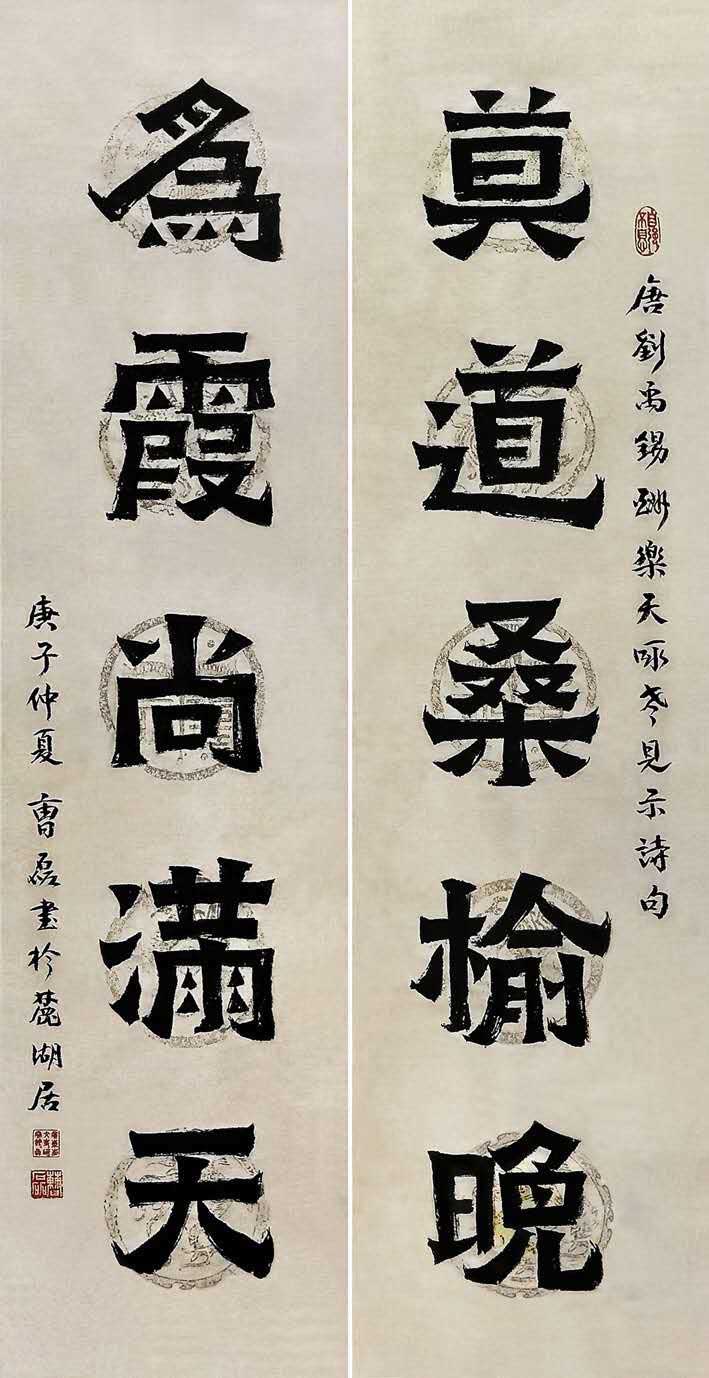 唐劉禹錫酬樂天咏老見示詩句
莫道桑榆晚
為霞尚滿天
庚子仲夏曹磊書於麓湖居